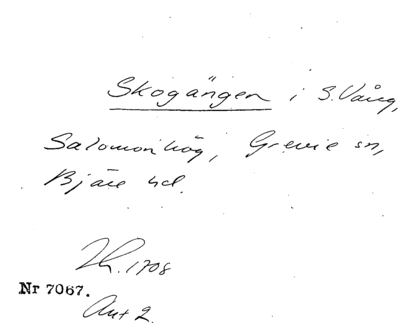 Skogängen i S. Vång,
Salomonhög, Grevie sn,
Bjäre hd.
Lh. 1708
Nr 7067.
Ant 2.